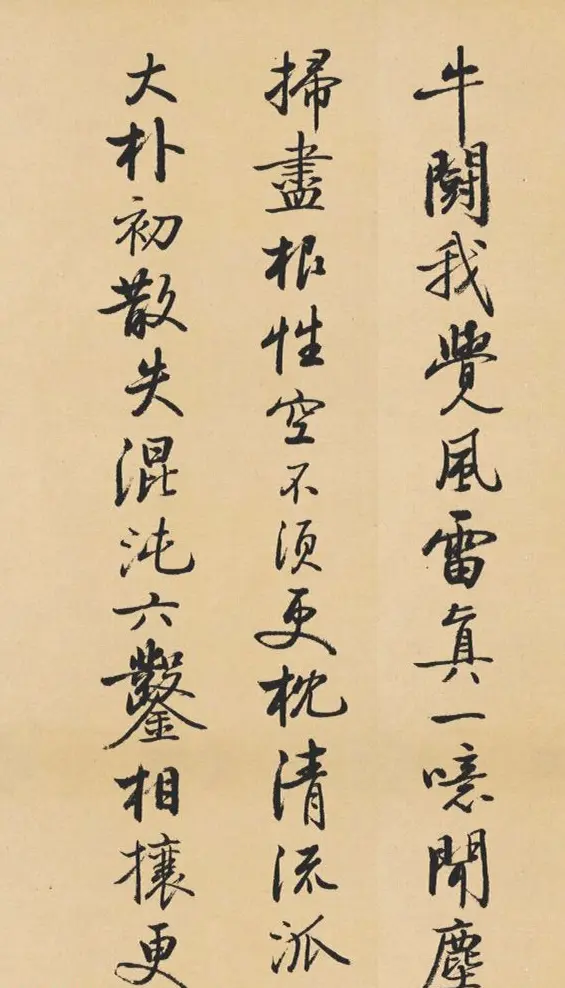 牛鬬我覺風雷真一噫聞塵
掃盡根性空不須更枕清流派
大朴初散失混沌六鑿相攘更